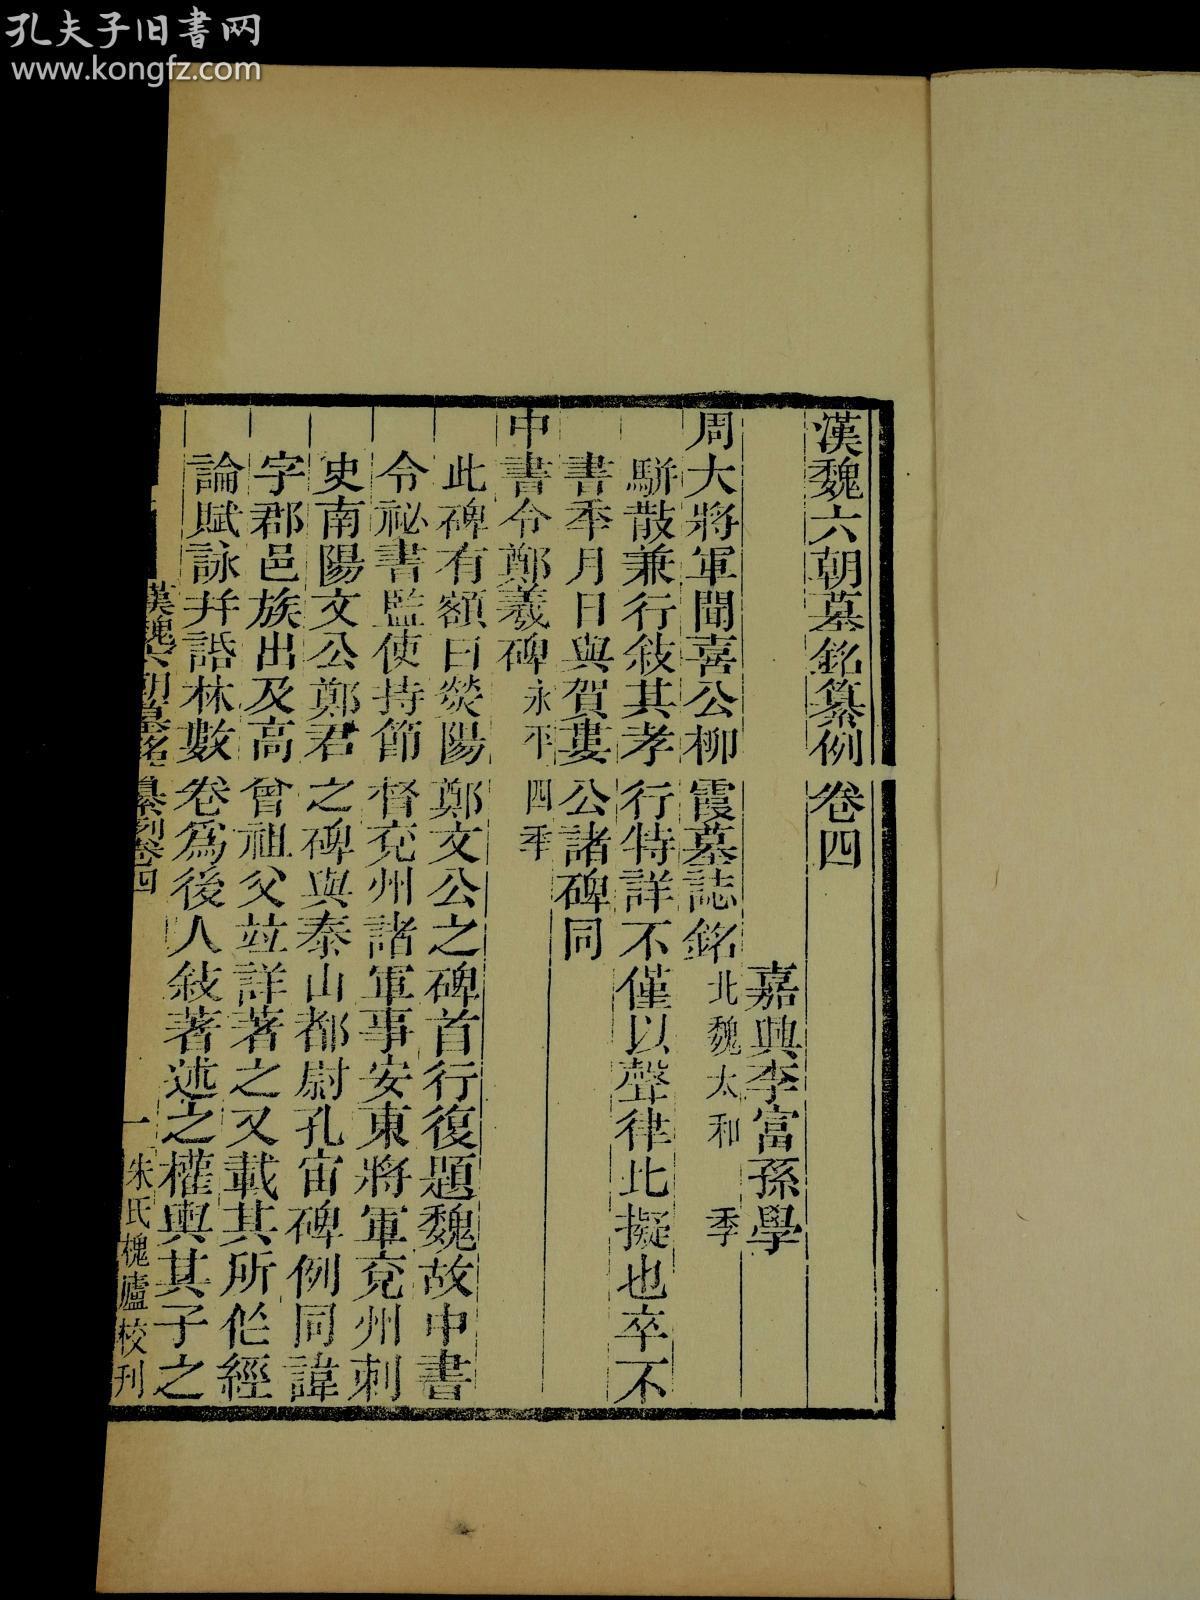 孔夫子旧书网
www.kongfz.com
漢魏六朝墓銘纂例卷四
嘉興李富孫學
周大將軍聞喜公柳霞墓誌銘北魏太和 季
駢散兼行敍其孝行特詳不僅以聲律比擬也卒不
書秊月日與賀婁公諸碑同
中書令鄭羲碑永平四秊
此碑有額曰熒陽鄭文公之碑首行復題魏故中書
令祕書監使持節督兖州諸軍事安東將軍兖州刺
史南陽文公鄭君之碑與泰山都尉孔宙碑例同諱
字郡邑族出及高曾祖父竝詳著之又載其所作經
論賦詠并話林數卷爲後人敍著述之權輿其子之
漢魏六朝墓銘纂例卷四
一
朱氏槐廬校刊